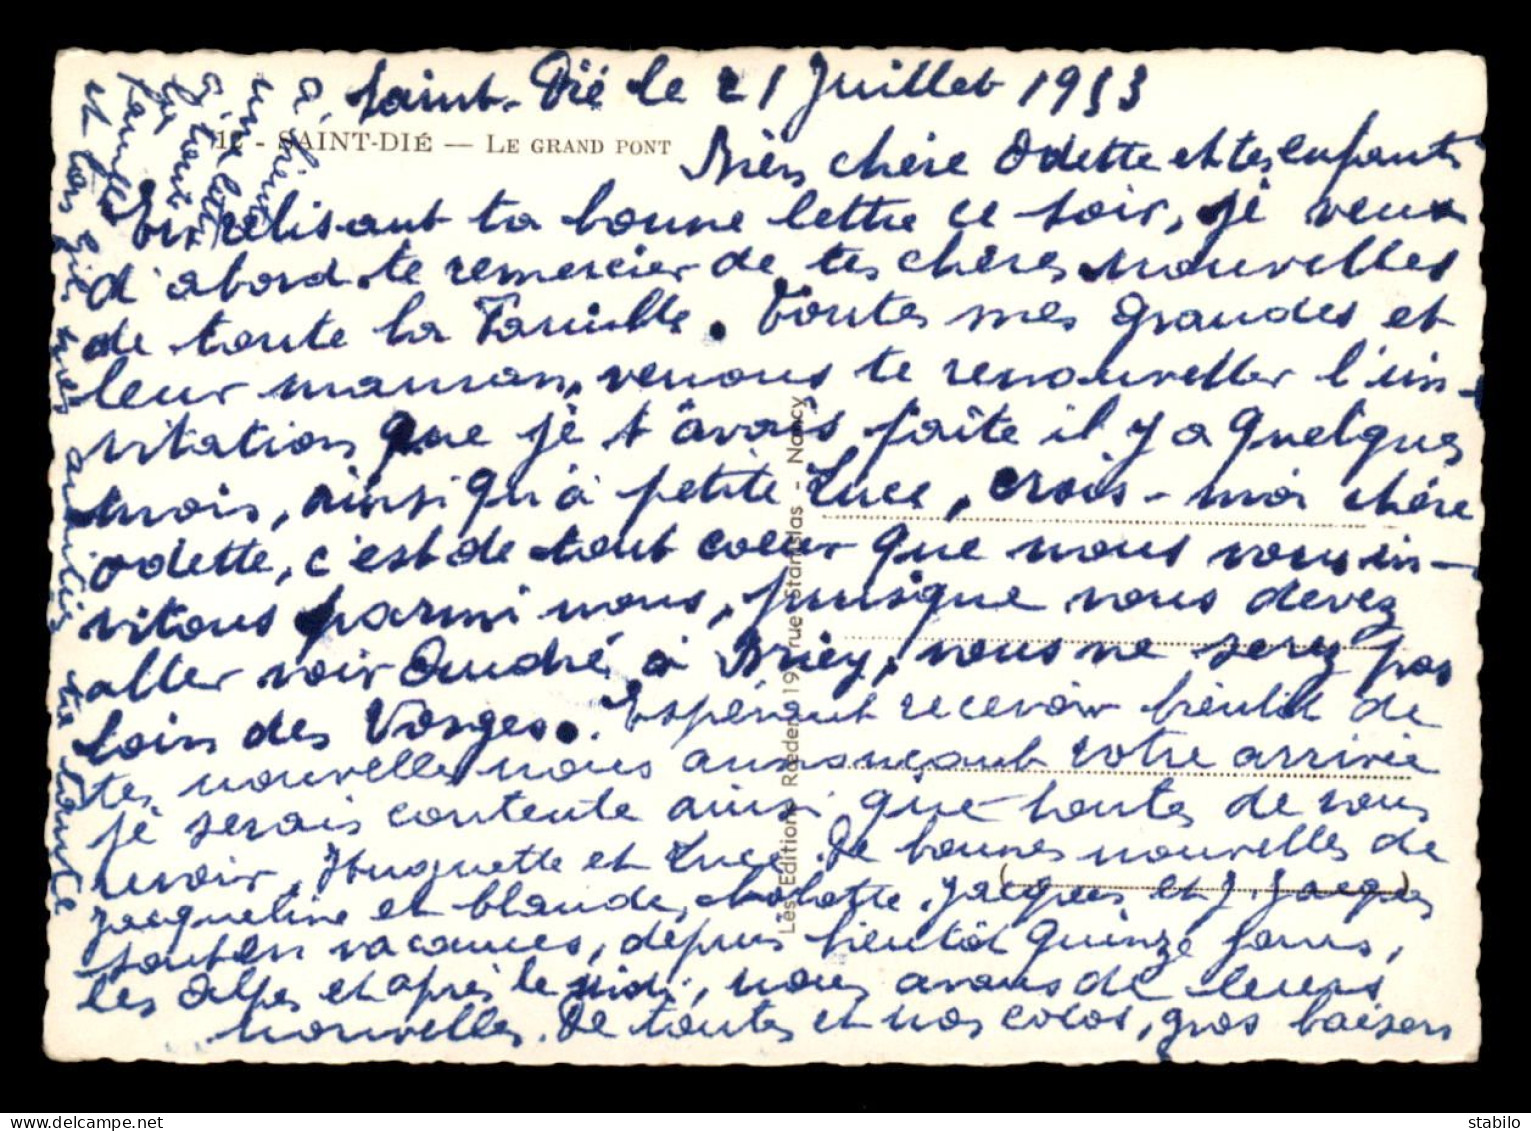 Saint-Dié le 21 Juillet 1953
12 - SAINT-DIÉ — LE GRAND PONT
Bien chère Odette et tes enfants
En relisant ta bonne lettre ce soir, je veux
d'abord te remercier de tes chères nouvelles
de toute la Famille. Toutes mes grandes et
leur maman, venons te renouveller l'in-
vitation que je t'avais faite il y a quelques
mois, ainsi qu'à petite Luce, crois-moi chère
Odette, c'est de tout coeur que nous vous in-
vitons parmi nous, puisque vous devez
aller voir André à Briey, vous ne serez pas
loin des Vosges. Espérant recevoir bientôt de
tes nouvelles nous annonçant votre arrivée
je serais contente ainsi que toutes de vous
revoir, Huguette et Luce. De bonnes nouvelles de
Jacqueline et blande, cholotte. Jacques et J. Jacques
sont en vacances, depuis bientôt quinze jours,
les Alpes et après le midi, nous avons de leurs
nouvelles. De toutes et nos cocos, gros baisers
à bientôt
une lettre
famille
et
ta tante
Les Editions Rœder 19, rue Stanislas - Nancy